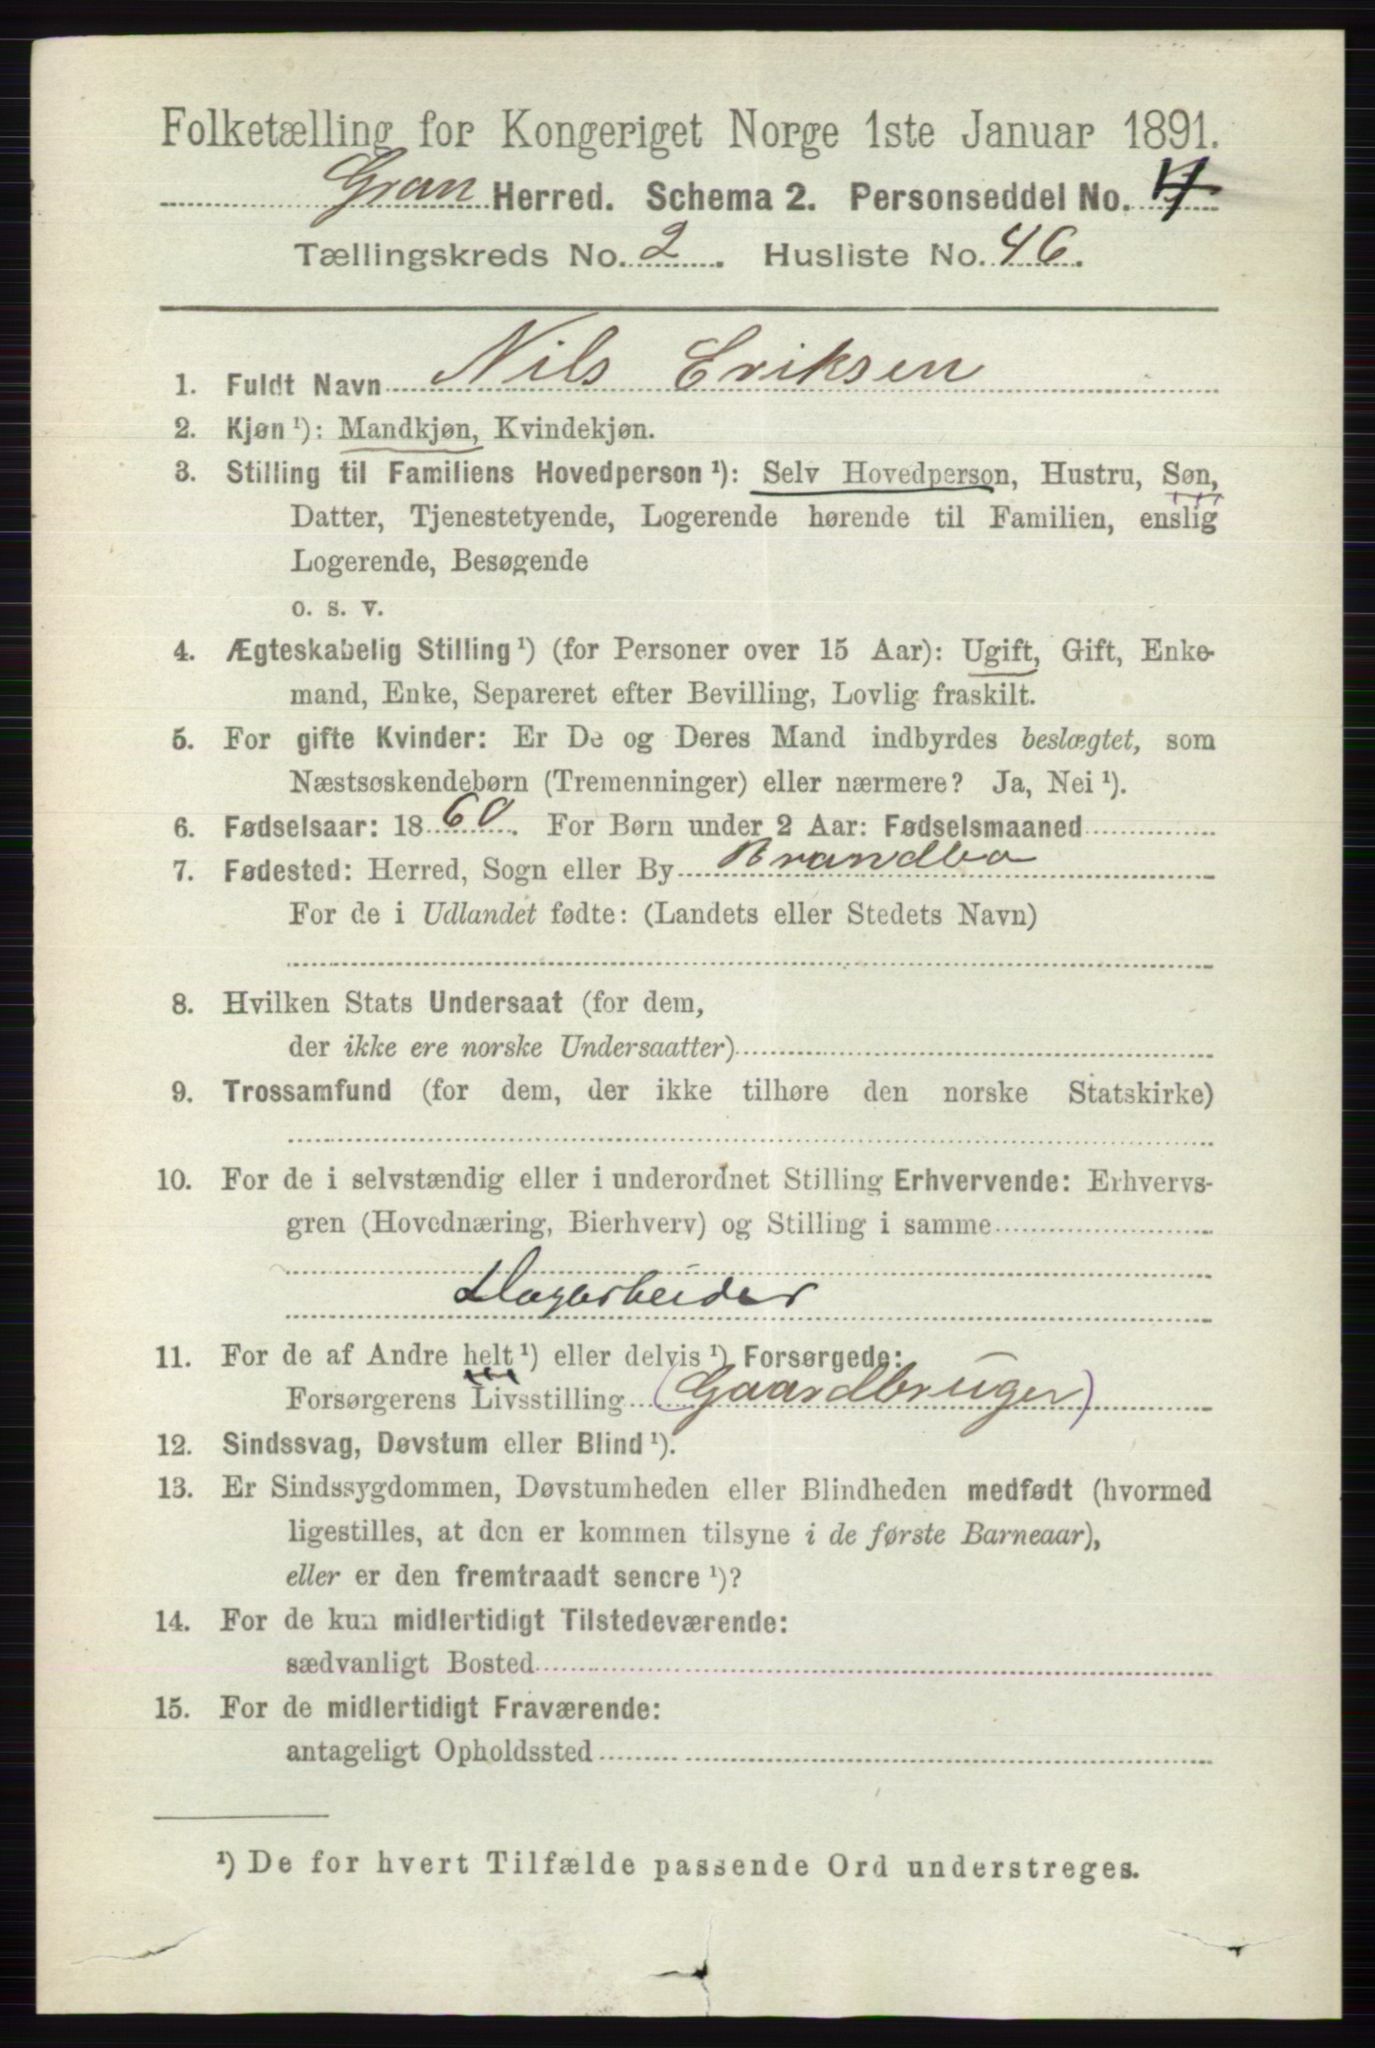 Folketælling for Kongeriget Norge 1ste Januar 1891.
Gran Herred. Schema 2. Personseddel No.
Tællingskreds No. 2. Husliste No. 46.
1. Fuldt Navn Nils Eriksen
2. Kjøn ¹): Mandkjøn, Kvindekjøn.
3. Stilling til Familiens Hovedperson ¹): Selv Hovedperson, Hustru, Søn,
Datter, Tjenestetyende, Logerende hørende til Familien, enslig
Logerende, Besøgende
o. s. v.
4. Ægteskabelig Stilling ¹) (for Personer over 15 Aar): Ugift, Gift, Enke-
mand, Enke, Separeret efter Bevilling, Lovlig fraskilt.
5. For gifte Kvinder: Er De og Deres Mand indbyrdes beslægtet, som
Næstsøskendebørn (Tremenninger) eller nærmere? Ja, Nei ¹).
6. Fødselsaar: 1860. For Børn under 2 Aar: Fødselsmaaned
7. Fødested: Herred, Sogn eller By Brandbo
For de i Udlandet fødte: (Landets eller Stedets Navn)
8. Hvilken Stats Undersaat (for dem,
der ikke ere norske Undersaatter)
9. Trossamfund (for dem, der ikke tilhøre den norske Statskirke)
10. For de i selvstændig eller i underordnet Stilling Erhvervende: Erhvervs-
gren (Hovednæring, Bierhverv) og Stilling i samme
Dagarbeider
11. For de af Andre helt ¹) eller delvis ¹) Forsørgede:
Forsørgerens Livsstilling (Gaardbruger)
12. Sindssvag, Døvstum eller Blind ¹).
13. Er Sindssygdommen, Døvstumheden eller Blindheden medfødt (hvormed
ligestilles, at den er kommen tilsyne i de første Barneaar),
eller er den fremtraadt senere ¹)?
14. For de kun midlertidigt Tilstedeværende:
sædvanligt Bosted
15. For de midlertidigt Fraværende:
antageligt Opholdssted
¹) De for hvert Tilfælde passende Ord understreges.